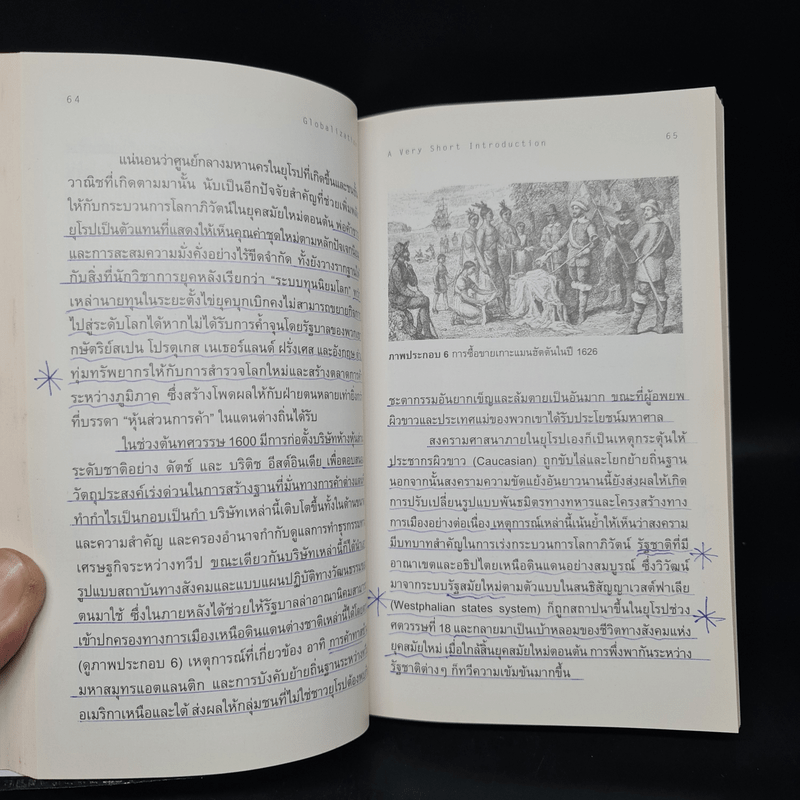 64
Globalization
แน่นอนว่าศูนย์กลางมหานครในยุโรปที่เกิดขึ้นและชนชั้น
วาณิชที่เกิดตามมานั้น นับเป็นอีกปัจจัยสำคัญที่ช่วยเพิ่มพลัง
ให้กับกระบวนการโลกาภิวัตน์ในยุคสมัยใหม่ตอนต้น พ่อค้าชาว
ยุโรปเป็นตัวแทนที่แสดงให้เห็นคุณค่าชุดใหม่ตามหลักปัจเจกนิยม
และการสะสมความมั่งคั่งอย่างไร้ขีดจำกัด ทั้งยังวางรากฐานให้
กับสิ่งที่นักวิชาการยุคหลังเรียกว่า "ระบบทุนนิยมโลก"
เหล่านายทุนในระยะตั้งไข่ยุคบุกเบิกคงไม่สามารถขยายกิจการ
ไปสู่ระดับโลกได้หากไม่ได้รับการค้ำจุนโดยรัฐบาลของพวกเขา
กษัตริย์สเปน โปรตุเกส เนเธอร์แลนด์ ฝรั่งเศส และอังกฤษ
ทุ่มทรัพยากรให้กับการสำรวจโลกใหม่และสร้างตลาดการค้า
ระหว่างภูมิภาค ซึ่งสร้างโภคผลให้กับฝ่ายตนหลายเท่ายิ่งกว่า
ที่บรรดา "หุ้นส่วนการค้า" ในแดนต่างถิ่นได้รับ
ในช่วงต้นทศวรรษ 1600 มีการก่อตั้งบริษัทห้างหุ้นส่วน
ระดับชาติอย่าง ดัตช์ และ บริติช อีสต์อินเดีย เพื่อตอบสนอง
วัตถุประสงค์เร่งด่วนในการสร้างฐานที่มั่นทางการค้าต่างแดน
ทำกำไรเป็นกอบเป็นกำ บริษัทเหล่านี้เติบโตขึ้นทั้งในด้านขนาด
และความสำคัญ และครองอำนาจกำกับดูแลการทำธุรกรรมทาง
เศรษฐกิจระหว่างทวีป ขณะเดียวกันบริษัทเหล่านี้ก็ได้นำเอา
รูปแบบสถาบันทางสังคมและแบบแผนปฏิบัติทางวัฒนธรรม
ตนมาใช้ ซึ่งในภายหลังได้ช่วยให้รัฐบาลล่าอาณานิคมสามารถ
เข้าปกครองทางการเมืองเหนือดินแดนต่างชาติเหล่านี้ได้โดยตรง
(ดูภาพประกอบ 6) เหตุการณ์ที่เกี่ยวข้อง อาทิ การค้าทาส
มหาสมุทรแอตแลนติก และการบังคับย้ายถิ่นฐานระหว่าง
อเมริกาเหนือและใต้ ส่งผลให้กลุ่มชนที่ไม่ใช่ชาวยุโรปต้องพบ
A Very Short Introduction
65
ภาพประกอบ 6 การซื้อขายเกาะแมนฮัตตันในปี 1626
ชะตากรรมอันยากเข็ญและล้มตายเป็นอันมาก ขณะที่ผู้อพยพ
ผิวขาวและประเทศแม่ของพวกเขาได้รับประโยชน์มหาศาล
สงครามศาสนาภายในยุโรปเองก็เป็นเหตุกระตุ้นให้
ประชากรผิวขาว (Caucasian) ถูกขับไล่และโยกย้ายถิ่นฐาน
นอกจากนั้นสงครามความขัดแย้งอันยาวนานนี้ยังส่งผลให้เกิด
การปรับเปลี่ยนรูปแบบพันธมิตรทางทหารและโครงสร้างทาง
การเมืองอย่างต่อเนื่อง เหตุการณ์เหล่านี้เน้นย้ำให้เห็นว่าสงคราม
มีบทบาทสำคัญในการเร่งกระบวนการโลกาภิวัตน์ รัฐชาติที่มี
อาณาเขตและอธิปไตยเหนือดินแดนอย่างสมบูรณ์ ซึ่งวิวัฒน์
มาจากระบบรัฐสมัยใหม่ตามตัวแบบในสนธิสัญญาเวสต์ฟาเลีย
(Westphalian states system) ก็ถูกสถาปนาขึ้นในยุโรปช่วง
ศตวรรษที่ 18 และกลายมาเป็นเบ้าหลอมของชีวิตทางสังคมแห่ง
ยุคสมัยใหม่ เมื่อใกล้สิ้นยุคสมัยใหม่ตอนต้น การพึ่งพากันระหว่าง
รัฐชาติต่างๆ ก็ทวีความเข้มข้นมากขึ้น